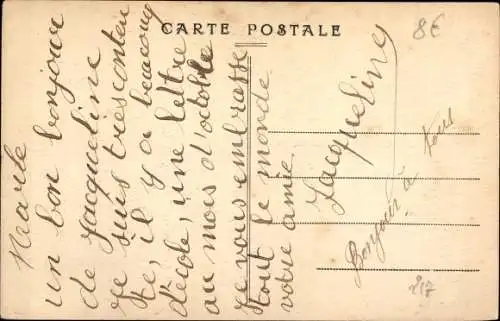 CARTE POSTALE
8€
Marie
un bon bonjour
de Jacqueline
je suis très conten
te, il y a beaucoup
d'école, une lettre
au mois d'octobre
je vous embrasse
tout le monde
votre amie
Jacqueline
Bonjour à tous
217